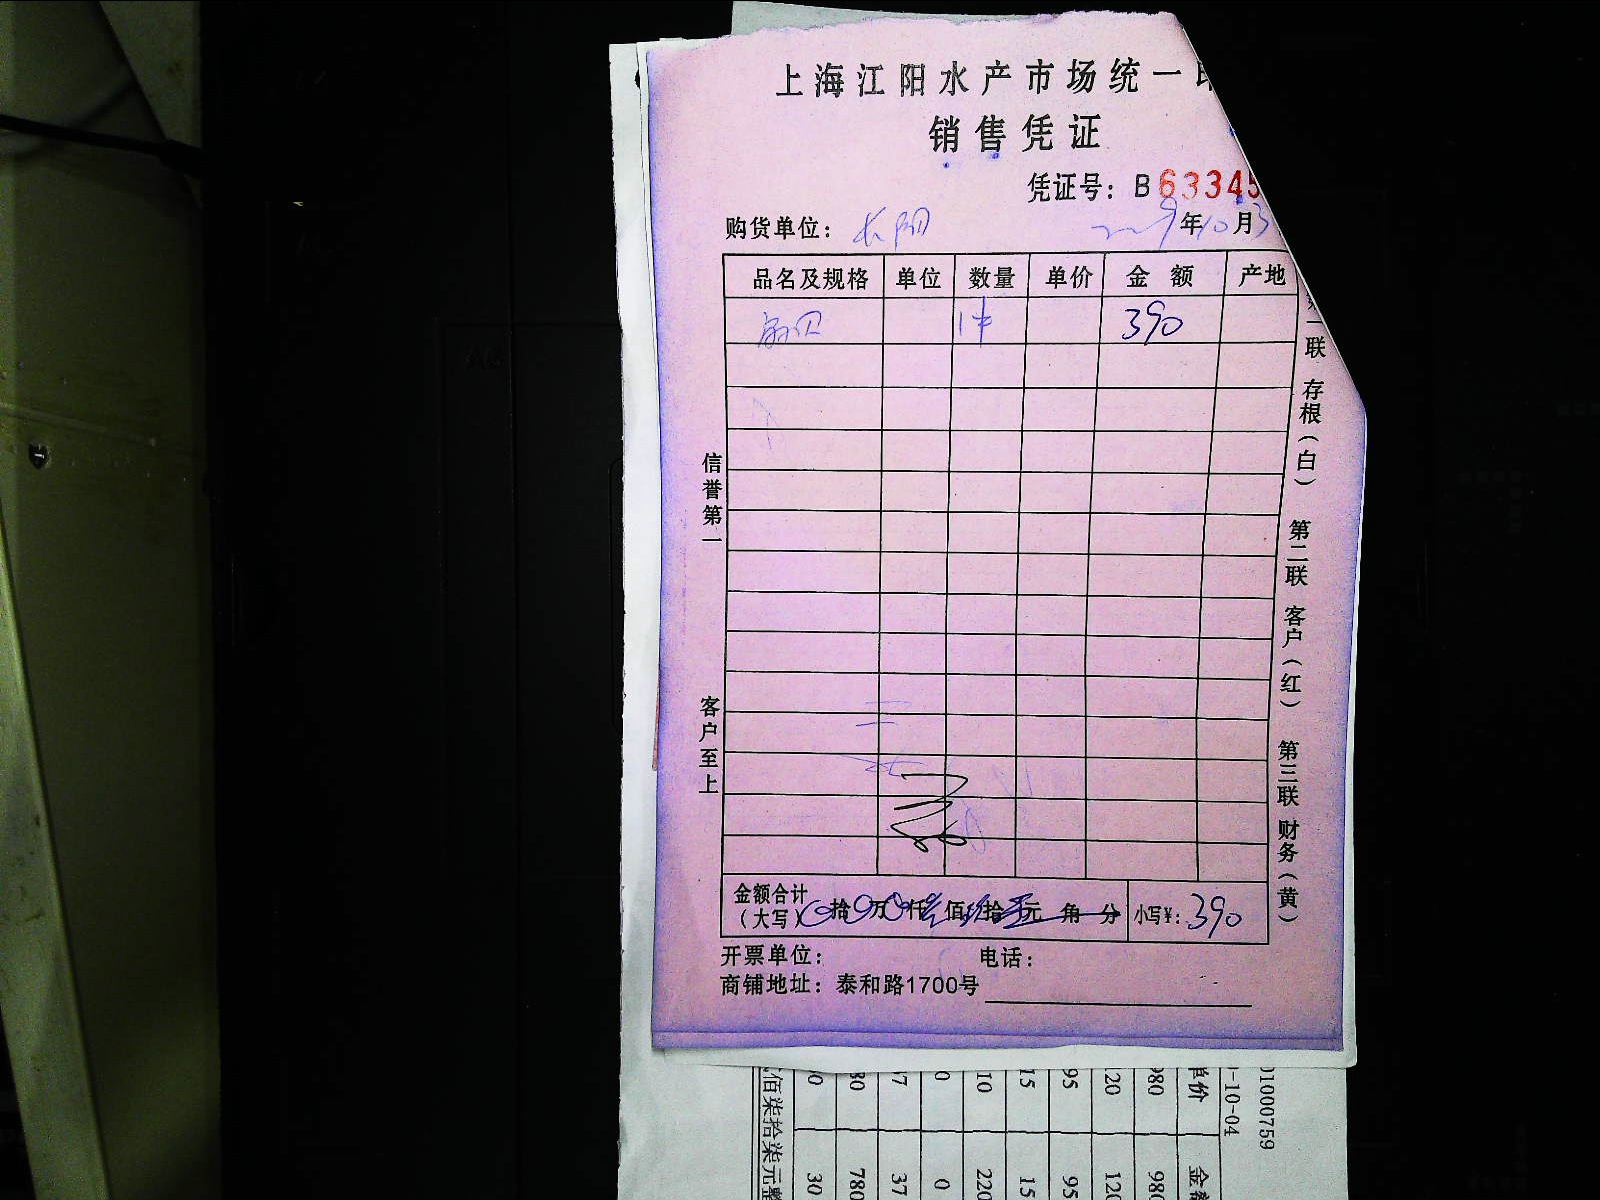 上海江阳水产市场统一
销售凭证
凭证号：B 63345
购货单位：长阳 年10月3
品名及规格 单位 数量 单价 金额 产地
扇贝 1件 390
信誉第一
客户至上
联 存根（白）
第二联 客户（红）
第三联 财务（黄）
金额合计（大写） 拾 万 仟 佰 拾 元 角 分 小写¥：390
开票单位： 电话：
商铺地址：泰和路1700号
01000759
-10-04
单价 金
980 980
120 120
95 95
15 15
10 220
0 0
37
80 780
30
佰柒拾柒元整